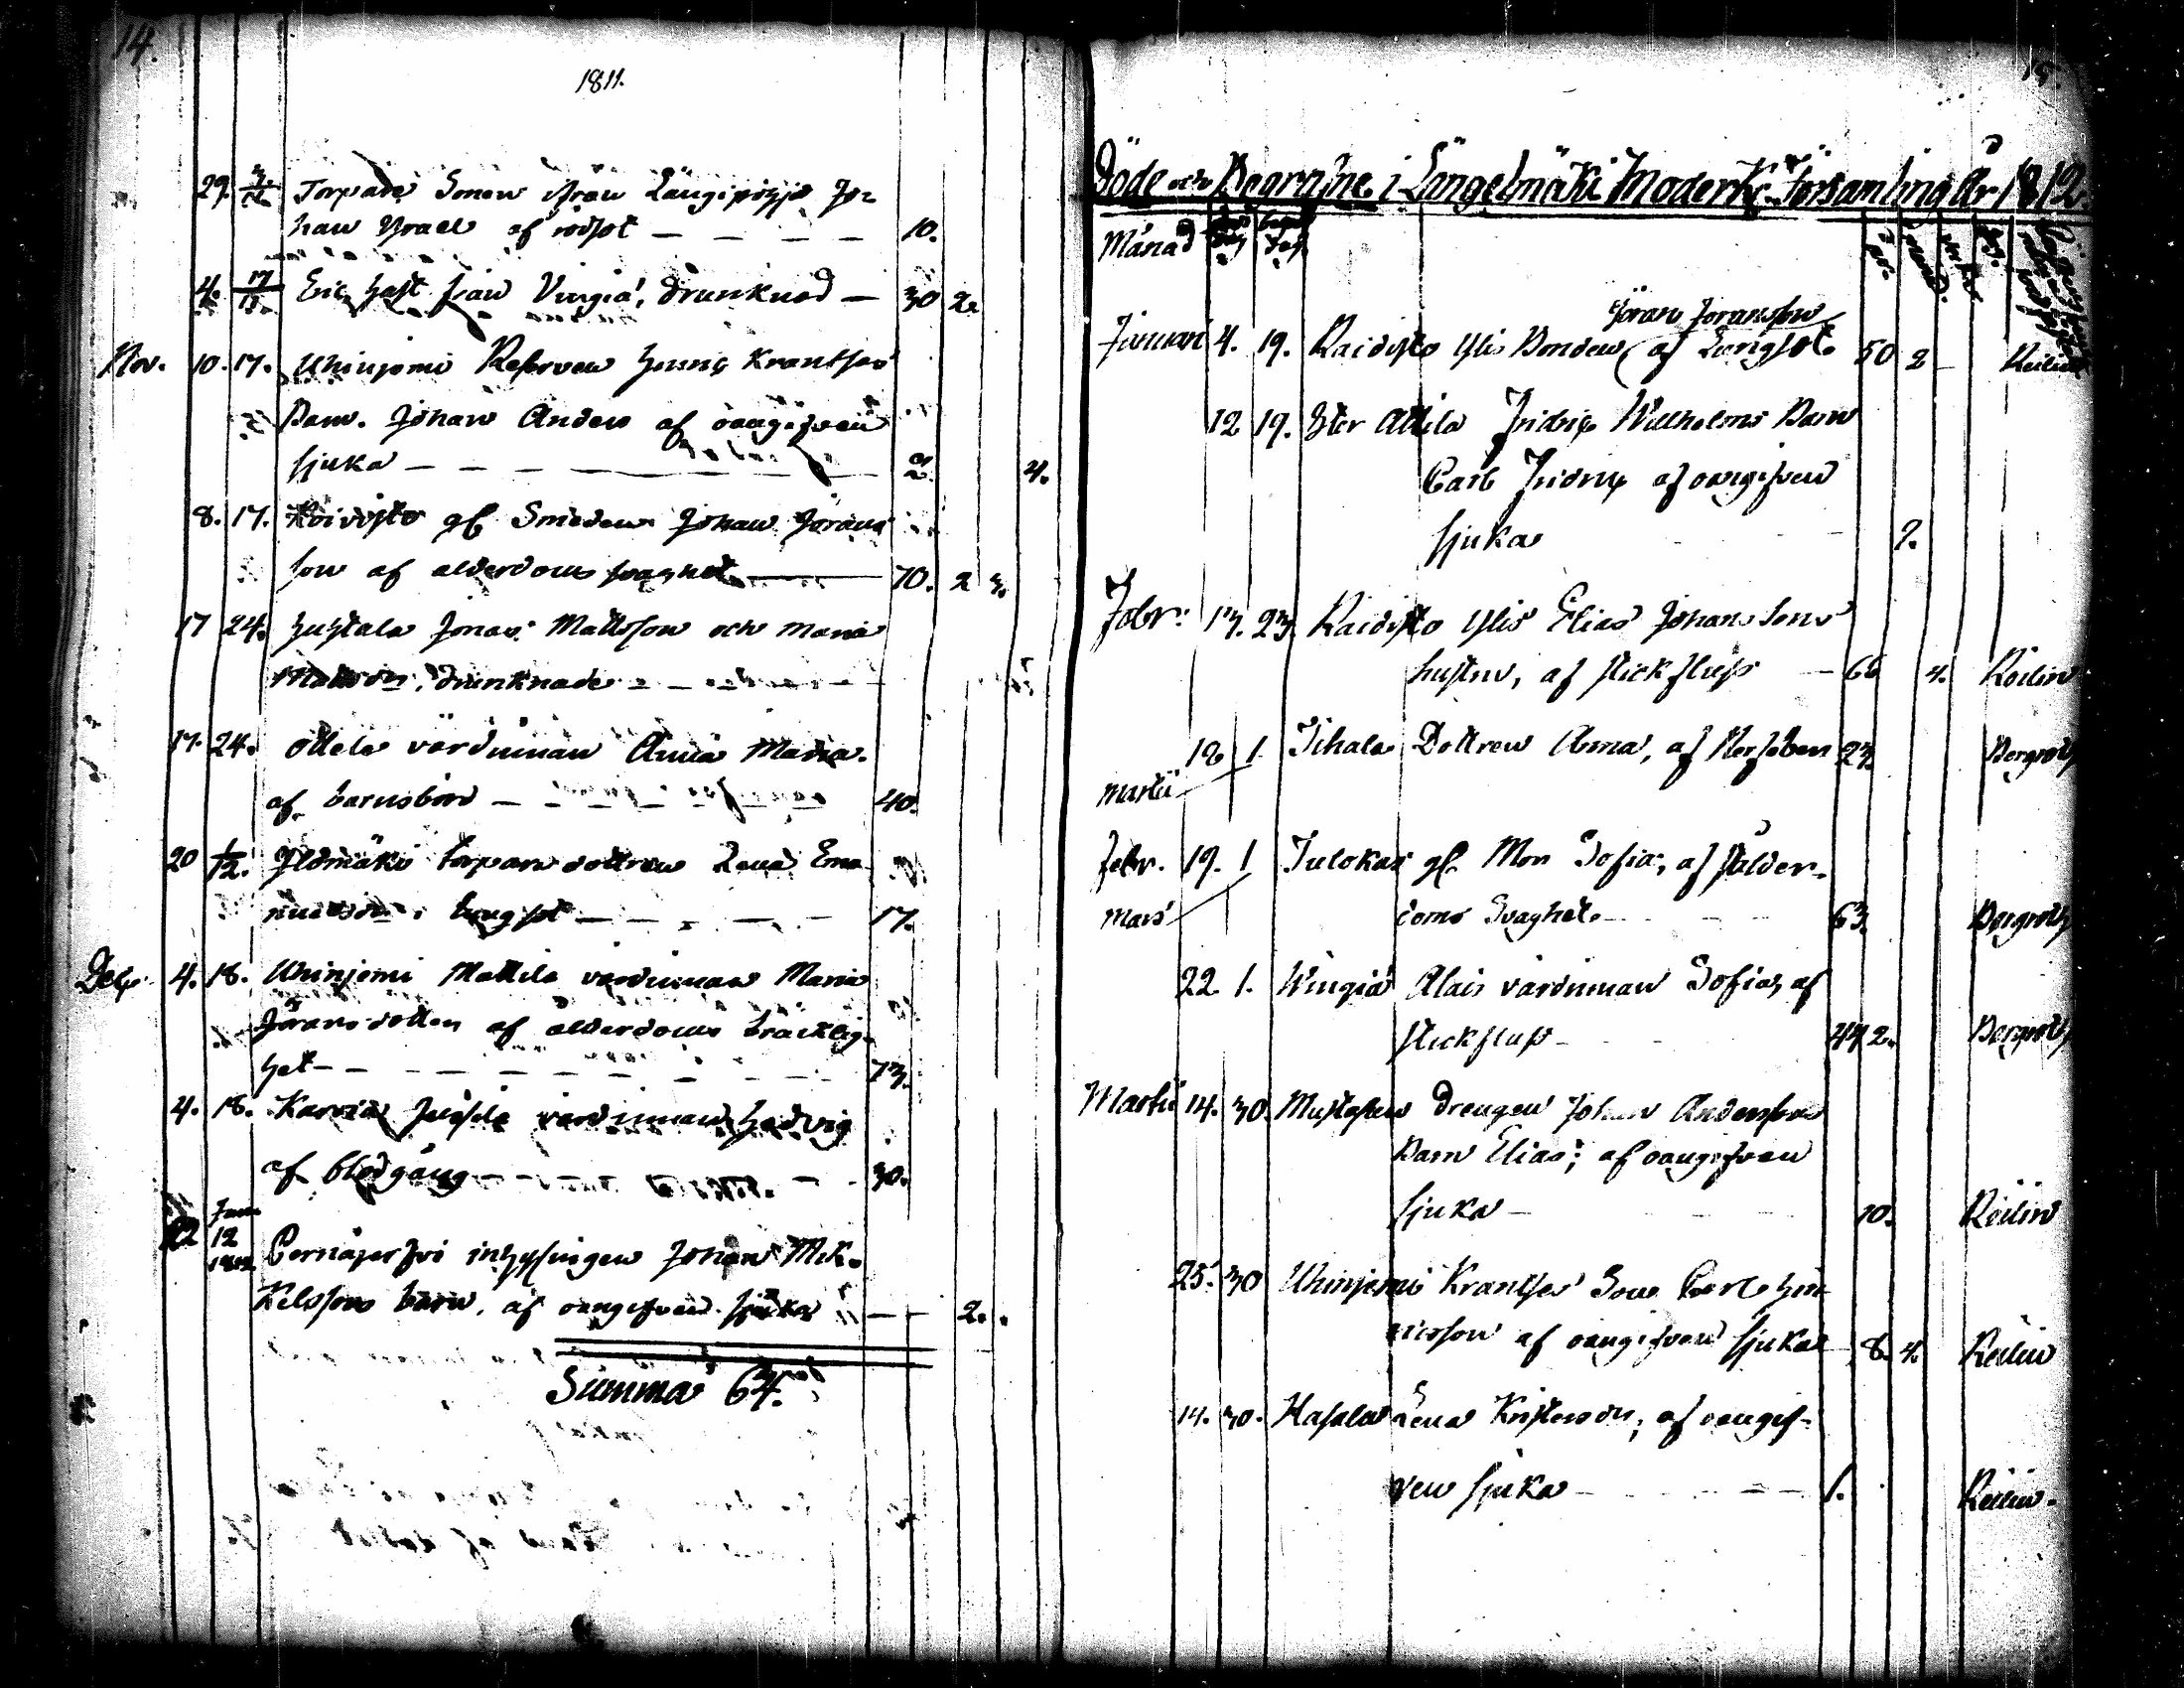 14.
1811.
29. 3/12 Torpare Sonen ifrån Längipohja Jo-
han Israel af rödsot — — — — 10.
4. 17/11 Eric Hast från Vingiä, drunknad — 30 2.
Nov. 10. 17. Uhinjemi Reserven Henric Krantzes
Barn. Johan Anders af oangifven
sjuka — — — 2. 4.
8. 17. Koivisto gl. Smeden Johan Jörans
son af alderdoms svaghet — 70. 2 3.
17 24. Jonas Mattsson och Maria
drunknade — — —
17. 24. Ottela värdinnan Anna Maria.
af barnsbörd — — — 40.
20 1/12. torpare dottren Lena Ema-
nuelsdr. i lungsot — — — 17.
Dec. 4. 18. Uhinjemi Mattila värdinnan Maria
Jöransdotter af ålderdoms bräcklig-
het — — — 73.
4. 18. värdinnan Hedvig
af blodgång — — — 30.
22 Jan. 12 1812 inhysingen Johan Mik-
kelssons barn, af oangifven sjuka — — 2.
Summa 64.
15.
Döde och Begrafne i Längelmäki Moderk. Församling År 1812.
Månad
Jöran Joransson
Januari 4. 19. Raidisto Ylis Bonden af Lungsot. 50 2 — Reilin
12 19. Yter Attila Fridric Willhelms Barn
Carl Fridric af oangifven
sjuka 9.
Febr: 13. 23. Raidisto Ylis Elias Johanssons
hustru, af stickfluss — 66 4. Reilin
18 1. Tihala Dottren Anna, af Nerfeber 23. Bergroth
Martii
Febr. 19. 1 Tulokas gl. Mor Sofia, af ålder-
Mars doms Svaghet. — 63. Bergroth
22. 1. Wingiä Alais värdinnan Sofia, af
stickfluss — 44 2. Bergroth
Martii 14. 30. Drengen Johan Andersson
Barn Elias; af oangifven
sjuka — 10. Reilin
25. 30 Uhinjemi Krantzes Son Carl Hen-
ricsson af oangifven sjuka 8. 4. Reilin
14. 30. Hasala Lena Kristersdr, af oangif-
ven sjuka — — — 1. Reilin.